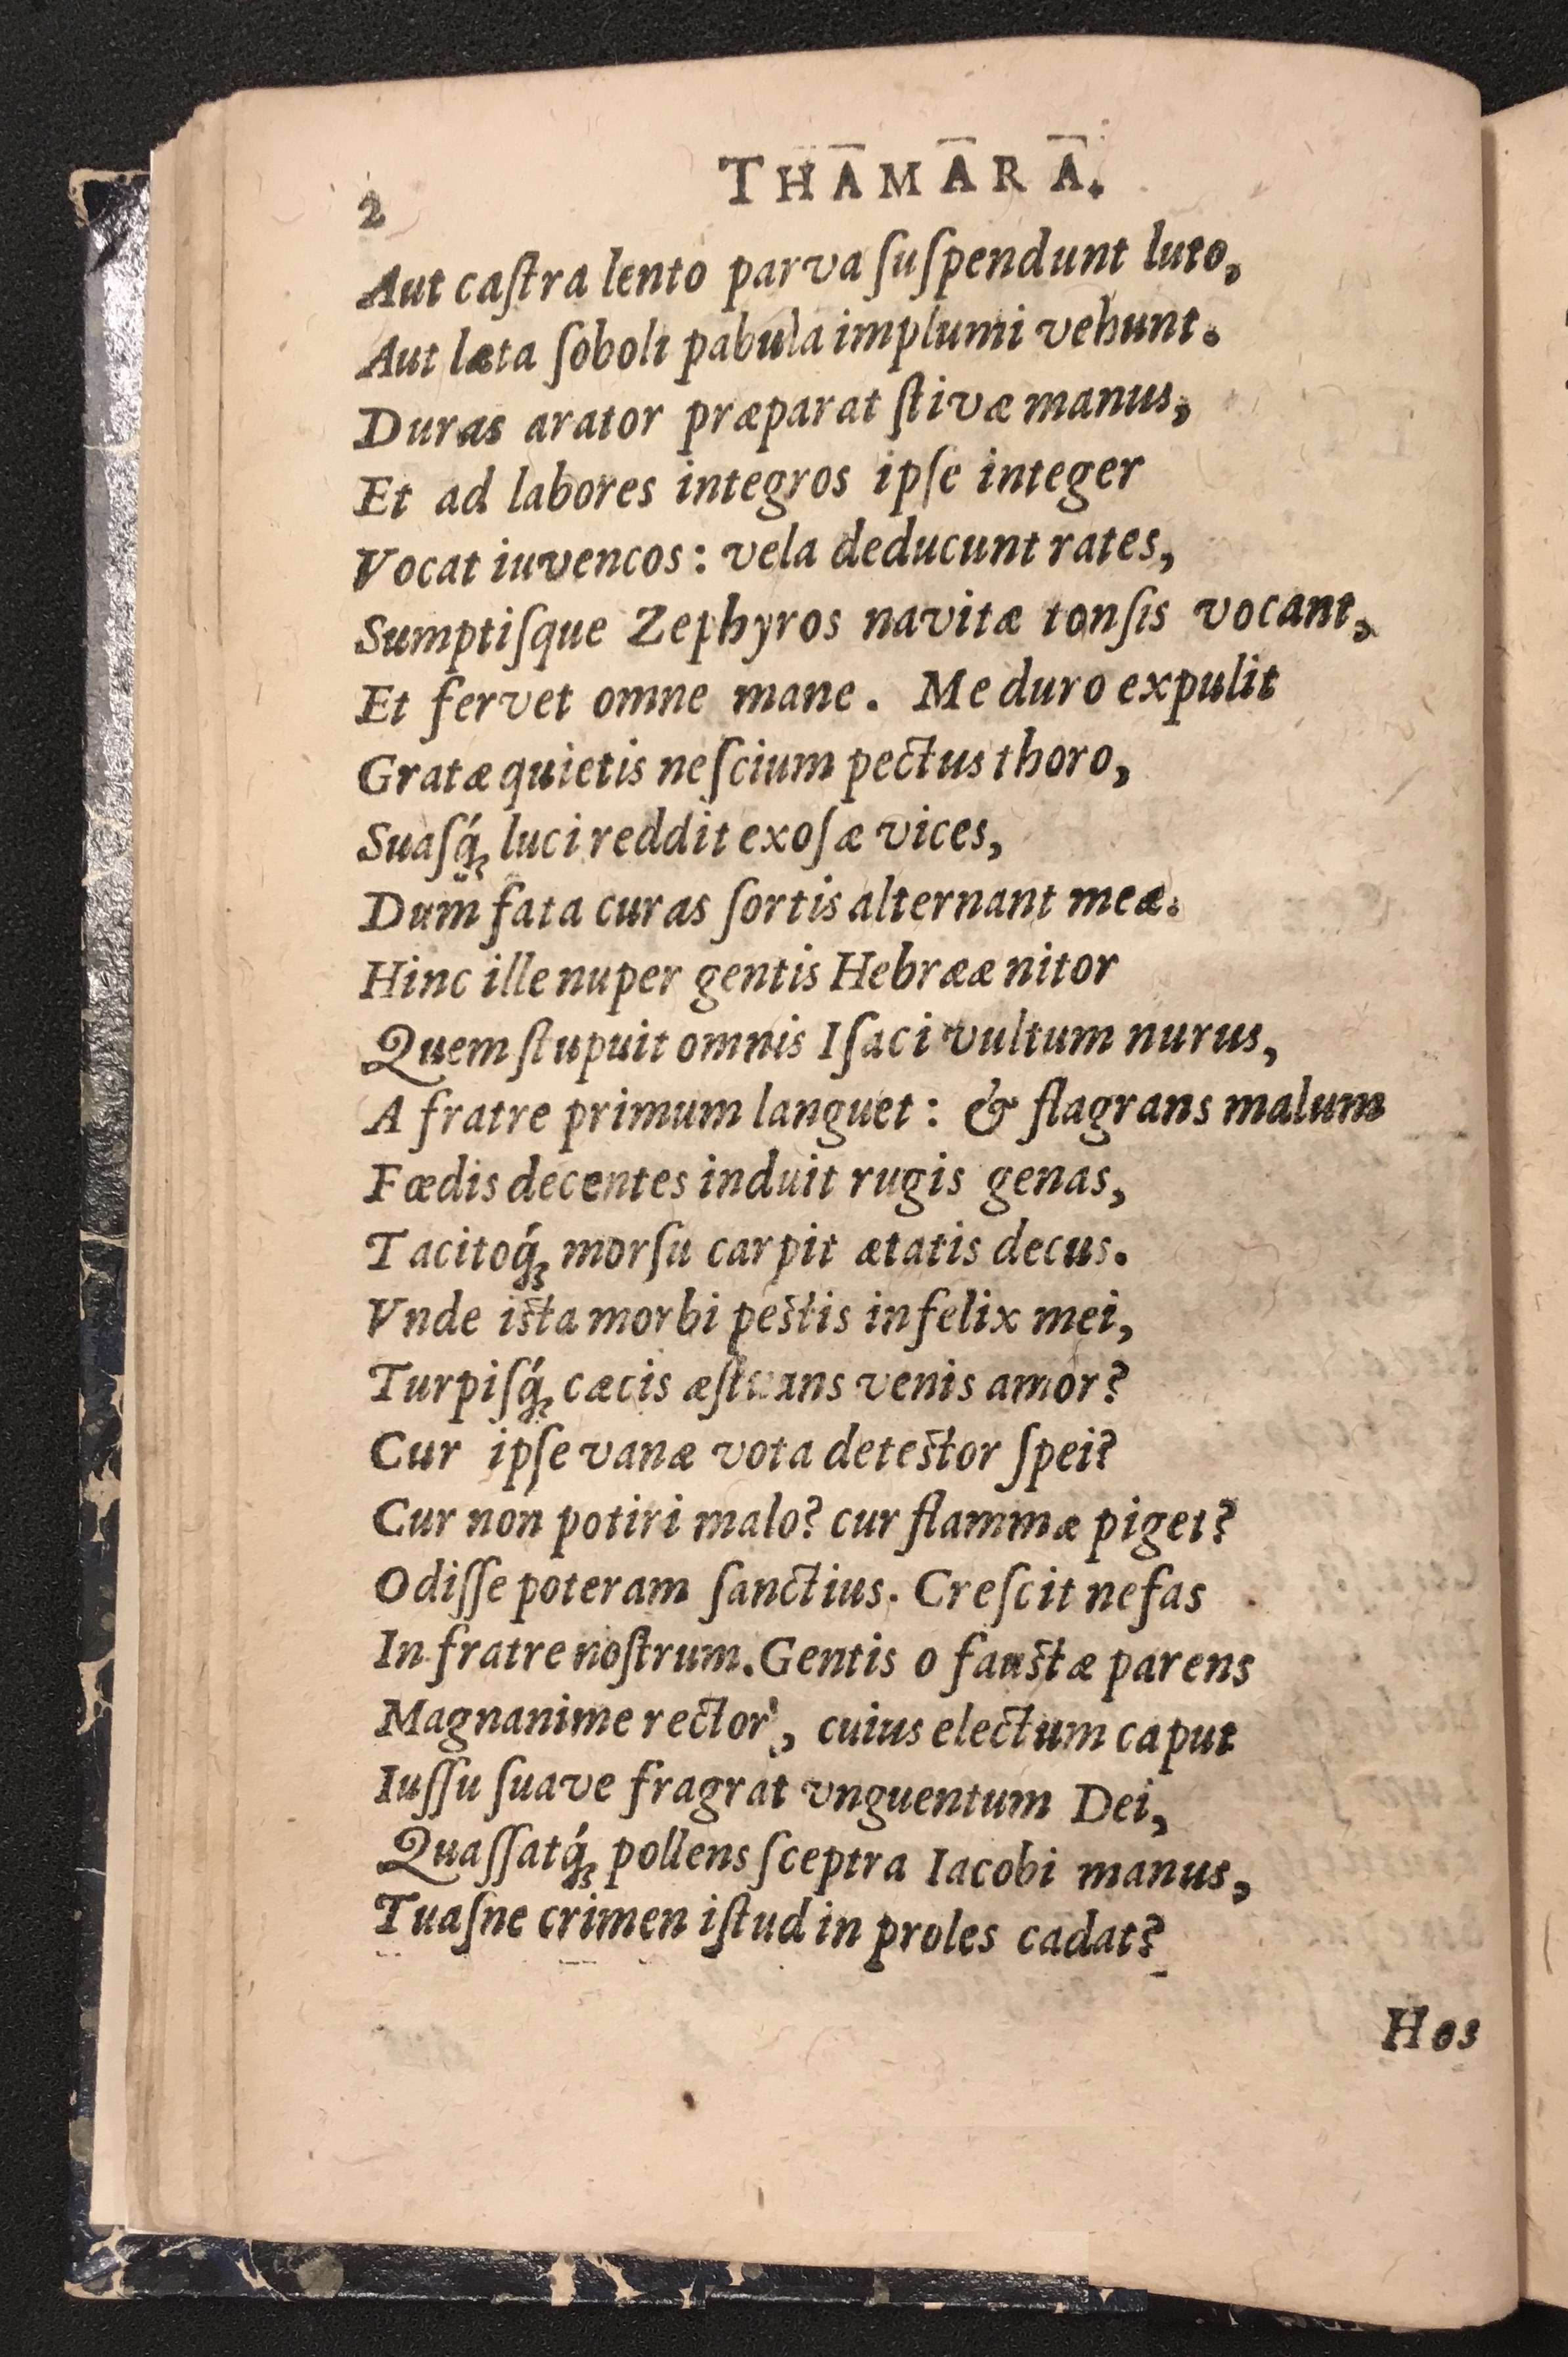 2
THAMARA.
Aut caſtra lento parva ſuſpendunt luto,
Aut læta ſoboli pabula implumi vehunt.
Duras arator præparat ſtivæ manus,
Et ad labores integros ipſe integer
Vocat iuvencos: vela deducunt rates,
Sumptiſque Zephyros navitæ tonſis vocant,
Et fervet omne mane. Me duro expulit
Gratæ quietis neſcium pectus thoro,
Suaſq́; luci reddit exoſæ vices,
Dum fata curas ſortis alternant meæ.
Hinc ille nuper gentis Hebrææ nitor
Quem ſtupuit omnis Iſaci vultum nurus,
A fratre primum languet: & flagrans malum
Fœdis decentes induit rugis genas,
Tacitoq́; morſu carpit ætatis decus.
Vnde iſta morbi peſtis infelix mei,
Turpiſq́; cæcis æſtuans venis amor?
Cur ipſe vanæ vota deteſtor ſpei?
Cur non potiri malo? cur flammæ piget?
Odiſſe poteram ſanctius. Creſcit nefas
In fratre noſtrum. Gentis o fauſtæ parens
Magnanime rector, cuius electum caput
Iuſſu ſuave fragrat vnguentum Dei,
Quaſſatq́; pollens ſceptra Iacobi manus,
Tuaſne crimen iſtud in proles cadat?
Hos